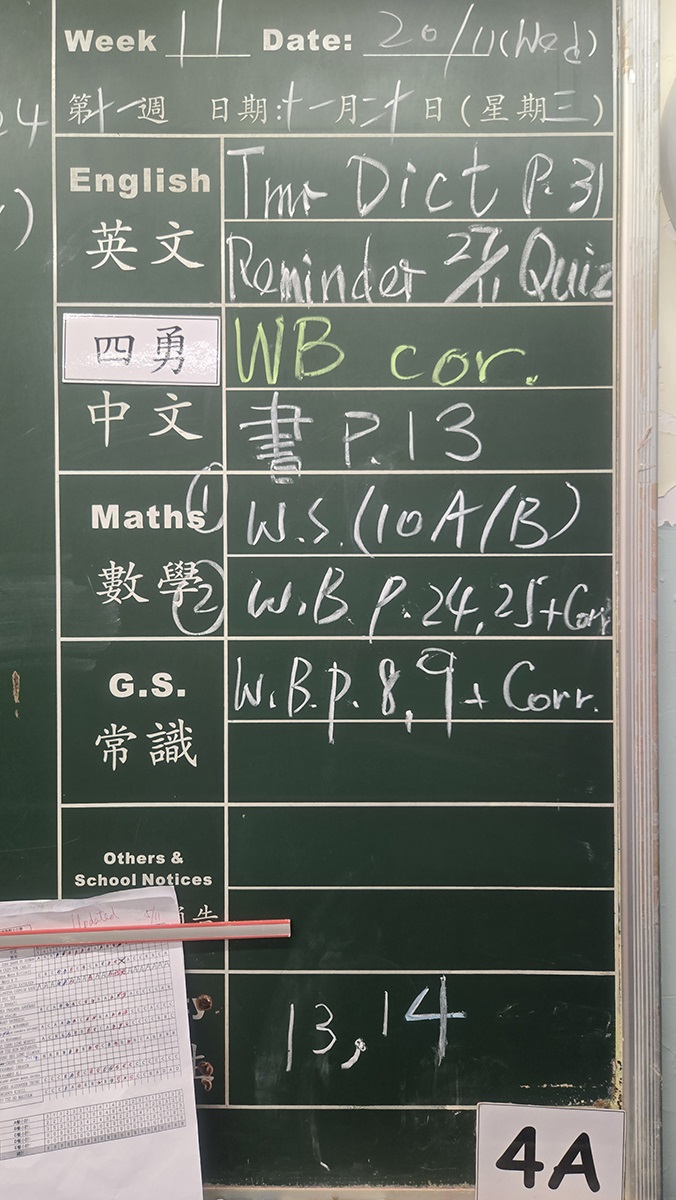 Week 11 Date: 20/11(Wed)
24 第十一週 日期:十一月二十日(星期三)
English Tmr Dict P.31
)
英文 Reminder 27/11 Quiz
四勇 WB cor.
中文 書 P.13
Maths ① W.S.(10A/B)
數學 ② W.B. P.24,25+Corr
G.S. W.B.P.8,9+Corr.
常識
Others &
School Notices
告
Updated 5/11
13,14
4A